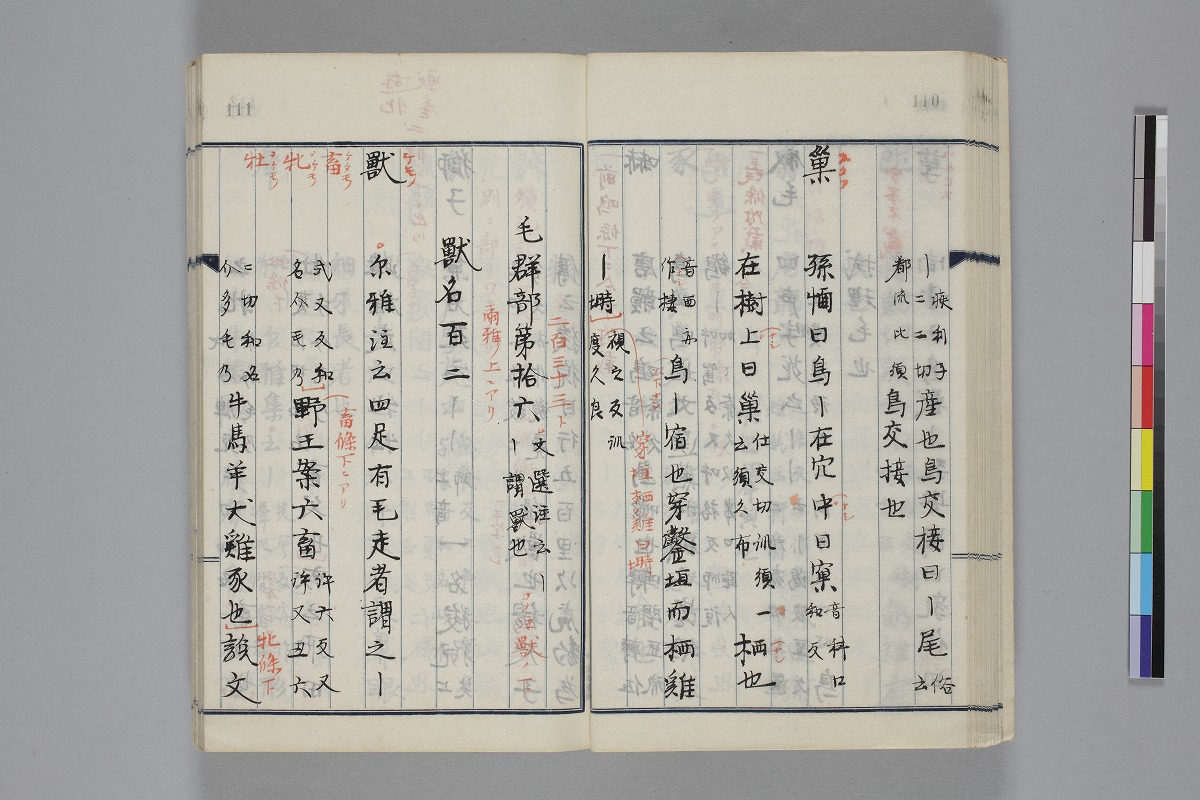 110
丨疾利子
二二切産也鳥交接曰丨尾俗云
都流比須鳥交接也
巣
孫愐曰鳥丨在穴中曰窠音科口和反
在樹上曰巣仕交切訓須一云須久布栖也
音西亦作棲鳥丨宿也穿鑿垣而栖雞
丨塒視之反訓度久良
穿垣栖雞曰塒
毛群部第拾六文選注云丨丨謂獣也
二百三十三ト
獸名百二
爾雅上ニアリ
獸
ケモノ
尓雅注云四足有毛走者謂之丨
畜
ケタモノ
牝
牡
式又反和名介毛乃野王案六畜許六反又許又丑六
畜條下ニアリ
二切和名介多毛乃牛馬羊犬雞豕也説文
牝條下
111